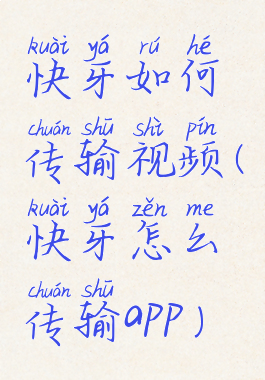 kuài yá rú hé
快牙如何
chuán shū shì pín
传输视频(
kuài yá zěn me
快牙怎么
chuán shū
传输app)